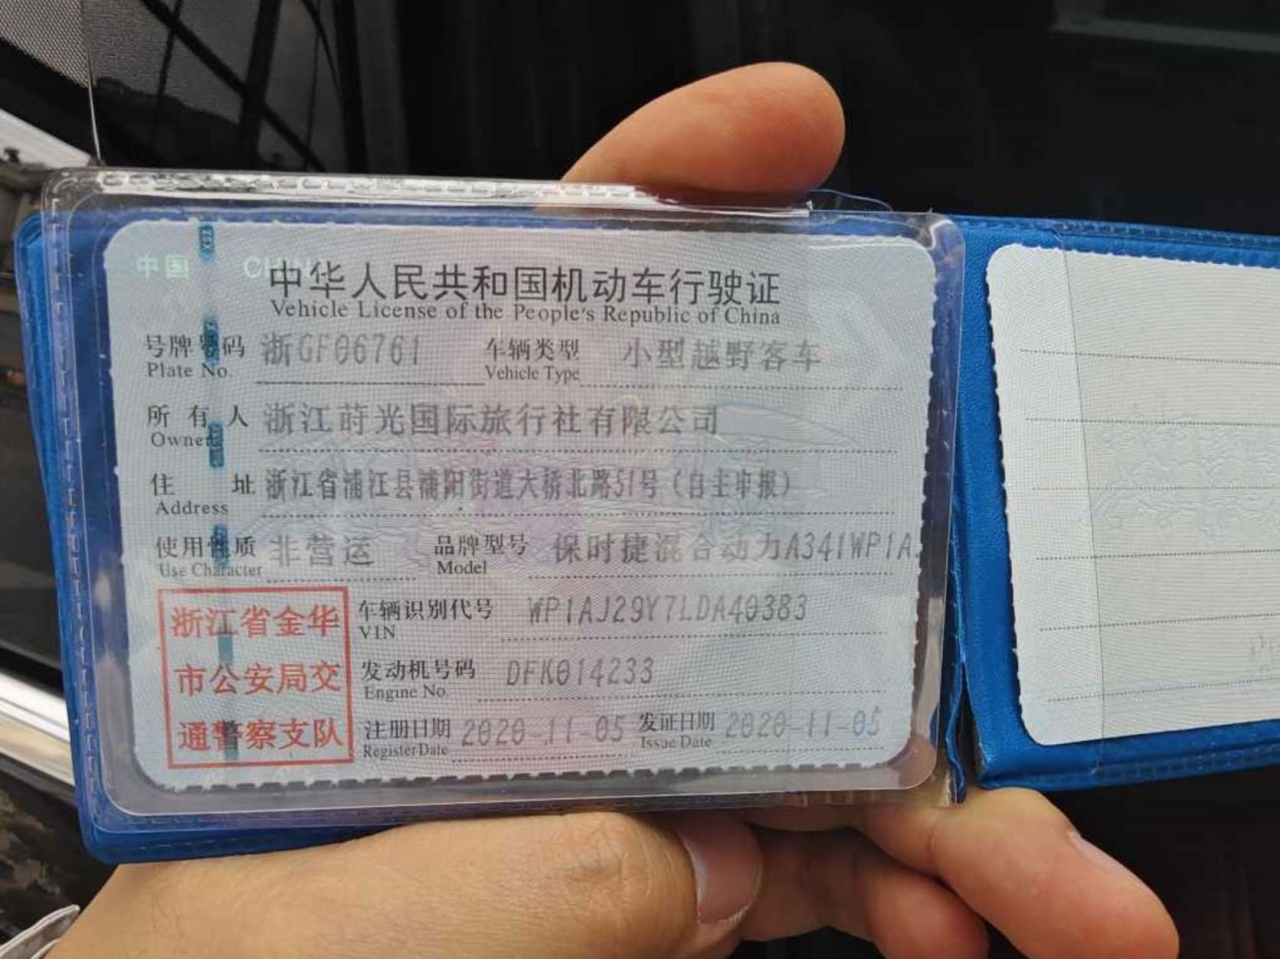 中国 CHINA
中华人民共和国机动车行驶证
Vehicle License of the People's Republic of China
号牌号码 浙GF06761 车辆类型 小型越野客车
Plate No. Vehicle Type
所有人 浙江莳光国际旅行社有限公司
Owner
住址 浙江省浦江县浦阳街道大桥北路51号（自主申报）
Address
使用性质 非营运 品牌型号 保时捷混合动力A341WP1A
Use Character Model
浙江省金华
市公安局交
通警察支队
车辆识别代号 WP1AJ29Y7LDA40383
VIN
发动机号码 DFK014233
Engine No.
注册日期 2020-11-05 发证日期 2020-11-05
Register Date Issue Date